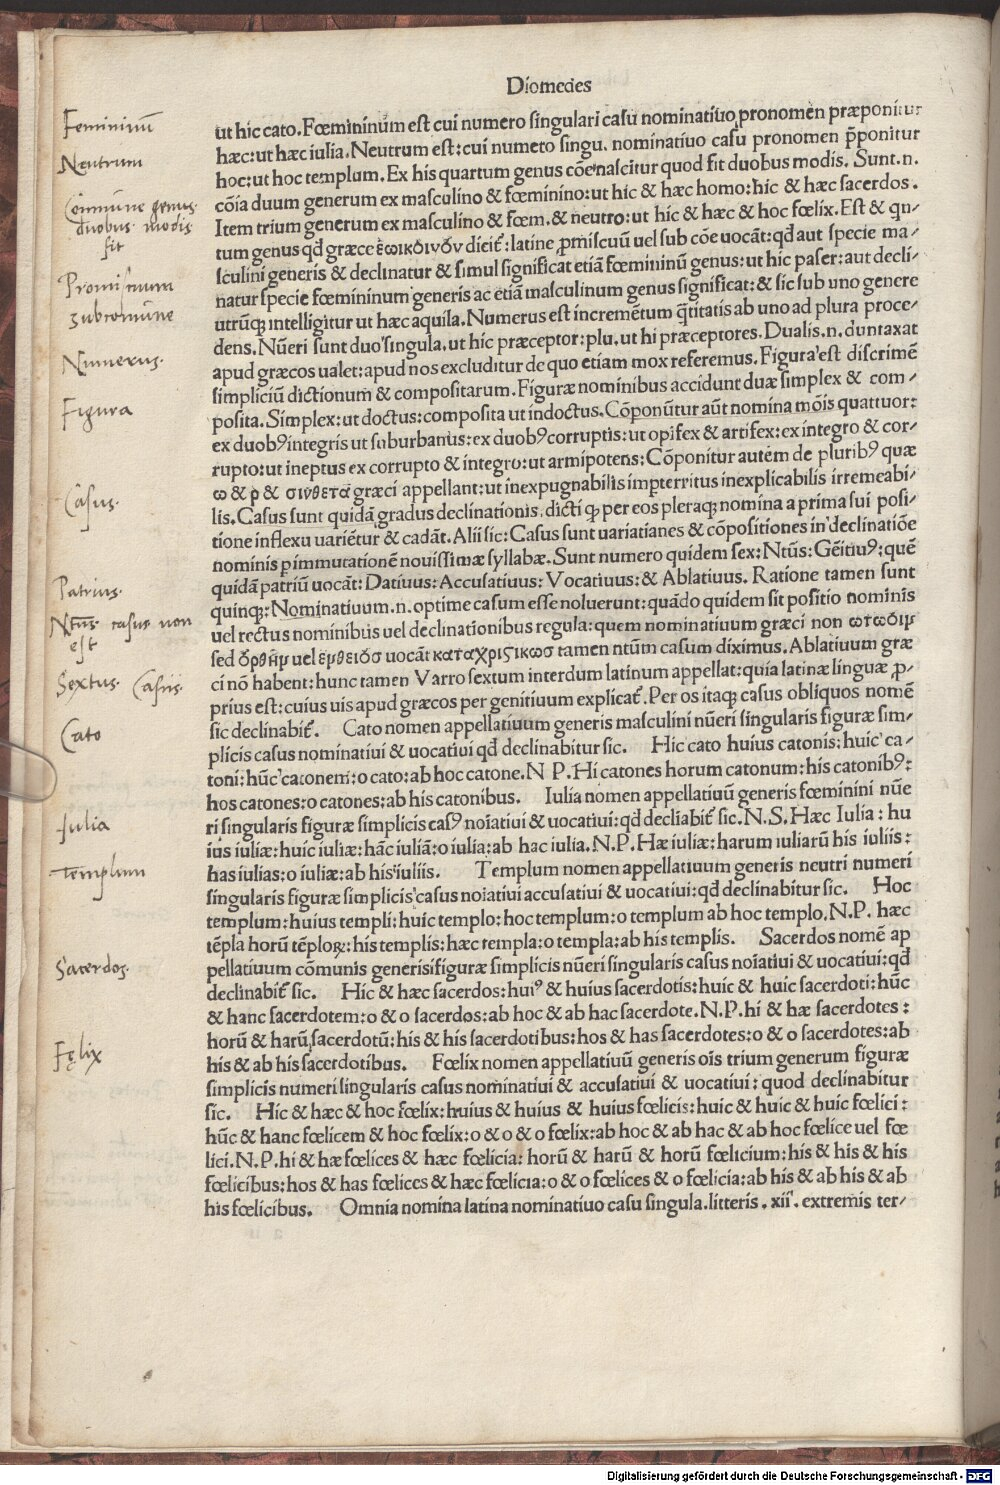 Diomedes
Femininũ
Neutrum
Cõmmune genus.
duobus modis
fit
Promiscuum
Subcomune
Numerus.
Figura
Casus.
Patrius.
Ntũs casus non
est
Sextus. Casus.
Cato
Julia
Templum
Sacerdos.
Fęlix
ut hic cato. Fœmininum est cui numero singulari casu nominatiuo pronomen præponitur
hæc: ut hæc iulia. Neutrum est: cui numeto singu. nominatiuo casu pronomen p̃ponitur
hoc: ut hoc templum. Ex his quartum genus cõe nascitur quod fit duobus modis. Sunt .n.
cõia duum generum ex masculino & fœminino: ut hic & hæc homo: hic & hæc sacerdos.
Item trium generum ex masculino & fœm. & neutro: ut hic & hæc & hoc fœlix. Est & qn-
tum genus qđ græce ἐωικὸινὸν dicit̃: latine ꝓmiscuũ uel sub cõe uocãt: qđ aut specie ma-
sculini generis & declinatur & simul significat etiã fœmininũ genus: ut hic paser: aut decli-
natur specie fœmininum generis ac etiã masculinum genus significat: & sic sub uno genere
utrũq; intelligitur ut hæc aquila. Numerus est incremẽtum q̃titatis ab uno ad plura proce-
dens. Nũeri sunt duo singula. ut hic præceptor: plu. ut hi præceptores. Dualis .n. duntaxat
apud græcos ualet: apud nos excluditur de quo etiam mox referemus. Figura est discrimẽ
simpliciũ dictionum & compositarum. Figuræ nominibus accidunt duæ simplex & com-
posita. Simplex: ut doctus: composita ut indoctus. Cõponũtur aũt nomina mõis quattuor:
ex duobꝰ integris ut suburbanus: ex duobꝰ corruptis: ut opifex & artifex: ex integro & cor-
rupto: ut ineptus ex corrupto & integro: ut armipotens: Cõponitur autem de pluribꝰ quæ
ω & ρ & σινθετα græci appellant: ut inexpugnabilis imperterritus inexplicabilis irremeabi-
lis. Casus sunt quidã gradus declinationis. dicti ꝙ per eos pleraq; nomina a prima sui posi-
tione inflexu uariẽtur & cadãt. Alii sic: Casus sunt uariatianes & cõpositiones in declinatiõe
nominis ꝑ immutationẽ nouissimæ syllabæ. Sunt numero quidem sex: Ntũs: Gẽitiuꝰ: quẽ
quidã patriũ uocãt: Datiuus: Accusatiuus: Vocatiuus: & Ablatiuus. Ratione tamen sunt
quinq;: Nominatiuum .n. optime casum esse noluerunt: quãdo quidem sit positio nominis
uel rectus nominibus uel declinationibus regula: quem nominatiuum græci non ωτωδιν
sed ὀρθἠν uel ἐυθειὀσ uocãt καταχριςικωσ tamen ntũm casum diximus. Ablatiuum græ
ci nõ habent: hunc tamen Varro sextum interdum latinum appellat: quia latinæ linguæ ꝓ-
prius est: cuius uis apud græcos per genitiuum explicat̃. Per os itaq; casus obliquos nomẽ
sic declinabit̃. Cato nomen appellatiuum generis masculini nũeri singularis figuræ sim-
plicis casus nominatiui & uocatiui qđ declinabitur sic. Hic cato huius catonis: huic ca-
toni: hũc catonem: o cato: ab hoc catone. N P. Hi catones horum catonum: his catonibꝰ:
hos catones: o catones: ab his catonibus. Iulia nomen appellatiuũ generis fœminini nũe
ri singularis figuræ simplicis casꝰ noiatiui & uocatiui: qđ decliabit̃ sic. N. S. Hæc Iulia: hu
ius iuliæ: huic iuliæ: hãc iuliã: o iulia: ab hac iulia. N. P. Hæ iuliæ: harum iuliarũ his iuliis:
has iulias: o iuliæ: ab his iuliis. Templum nomen appellatiuum generis neutri numeri
singularis figuræ simplicis casus noiatiui accusatiui & uocatiui: qđ declinabitur sic. Hoc
templum: huius templi: huic templo: hoc templum: o templum ab hoc templo. N. P. hæc
tẽpla horũ tẽploꝝ: his templis: hæc templa: o templa: ab his templis. Sacerdos nomẽ ap
pellatiuum cõmunis generis figuræ simplicis nũeri singularis casus noiatiui & uocatiui: qđ
declinabit̃ sic. Hic & hæc sacerdos: huiꝰ & huius sacerdotis: huic & huic sacerdoti: hũc
& hanc sacerdotem: o & o sacerdos: ab hoc & ab hac sacerdote. N. P. hi & hæ sacerdotes:
horũ & harũ sacerdotũ: his & his sacerdotibus: hos & has sacerdotes: o & o sacerdotes: ab
his & ab his sacerdotibus. Fœlix nomen appellatiuũ generis oĩs trium generum figuræ
simplicis numeri singularis casus nominatiui & accusatiui & uocatiui: quod declinabitur
sic. Hic & hæc & hoc fœlix: huius & huius & huius fœlicis: huic & huic & huic fœlici:
hũc & hanc fœlicem & hoc fœlix: o & o & o fœlix: ab hoc & ab hac & ab hoc fœlice uel fœ
lici. N. P. hi & hæ fœlices & hæc fœlicia: horũ & harũ & horũ fœlicium: his & his & his
fœlicibus: hos & has fœlices & hæc fœlicia: o & o fœlices & o fœlicia: ab his & ab his & ab
his fœlicibus. Omnia nomina latina nominatiuo casu singula. litteris .xii. extremis ter-
Digitalisierung gefördert durch die Deutsche Forschungsgemeinschaft - DFG